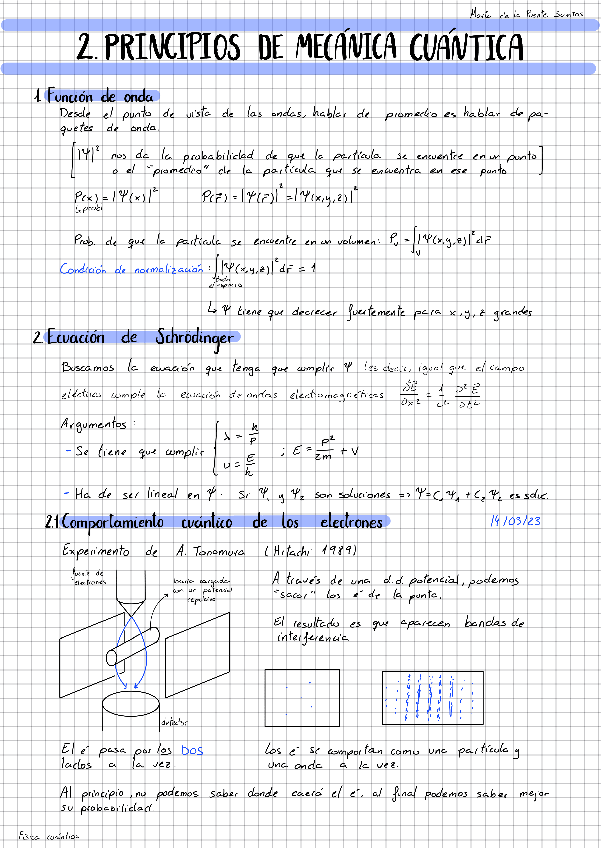 María de la Puente Santos
2. PRINCIPIOS DE MECÁNICA CUÁNTICA
1. Función de onda
Desde el punto de vista de las ondas, hablar de promedio es hablar de pa-
quetes de onda.
[|Ψ|² nos da la probabilidad de que la partícula se encuentre en un punto
o el "promedio" de la partícula que se encuentra en ese punto]
P(x) = |Ψ(x)|² P(r⃗) = |Ψ(r⃗)|² = |Ψ(x,y,z)|²
Prob. de que la partícula se encuentre en un volumen: Pᵥ = ∫ᵥ |Ψ(x,y,z)|² dr⃗
Condición de normalización: ∫ |Ψ(x,y,z)|² dr⃗ = 1
↳ Ψ tiene que decrecer fuertemente para x, y, z grandes
2. Ecuación de Schrödinger
Buscamos la ecuación que tenga que cumplir Ψ (es decir, igual que el campo
eléctrico cumple la ecuación de ondas electromagnéticas
Argumentos:
- Se tiene que cumplir { λ = h/p
ν = E/h ; E = p²/2m + V
- Ha de ser lineal en Ψ. Si Ψ₁ y Ψ₂ son soluciones => Ψ = C₁Ψ₁ + C₂Ψ₂ es soluc.
2.1 Comportamiento cuántico de los electrones 14/03/23
Experimento de A. Tonomura (Hitachi 1989)
fuente de
electrones
barra cargada
con un potencial
repulsivo
A través de una d.d. potencial, podemos
"sacar" los e⁻ de la punta.
El resultado es que aparecen bandas de
interferencia
detector
El e⁻ pasa por los DOS
lados a la vez
Los e⁻ se comportan como una partícula y
una onda a la vez.
Al principio, no podemos saber donde caerá el e⁻, al final podemos saber mejor
su probabilidad
Física cuántica